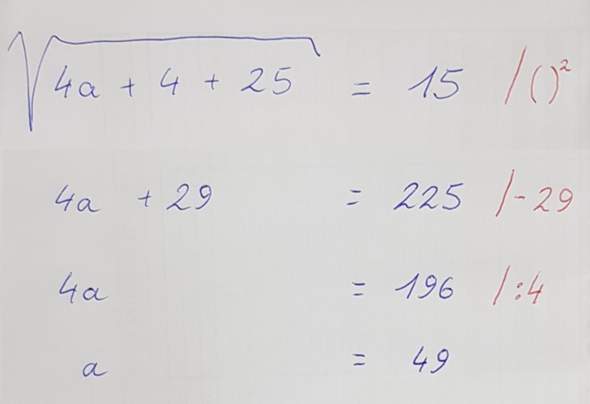 √(4a + 4 + 25) = 15 /()²
4a + 29 = 225 /-29
4a = 196 /:4
a = 49